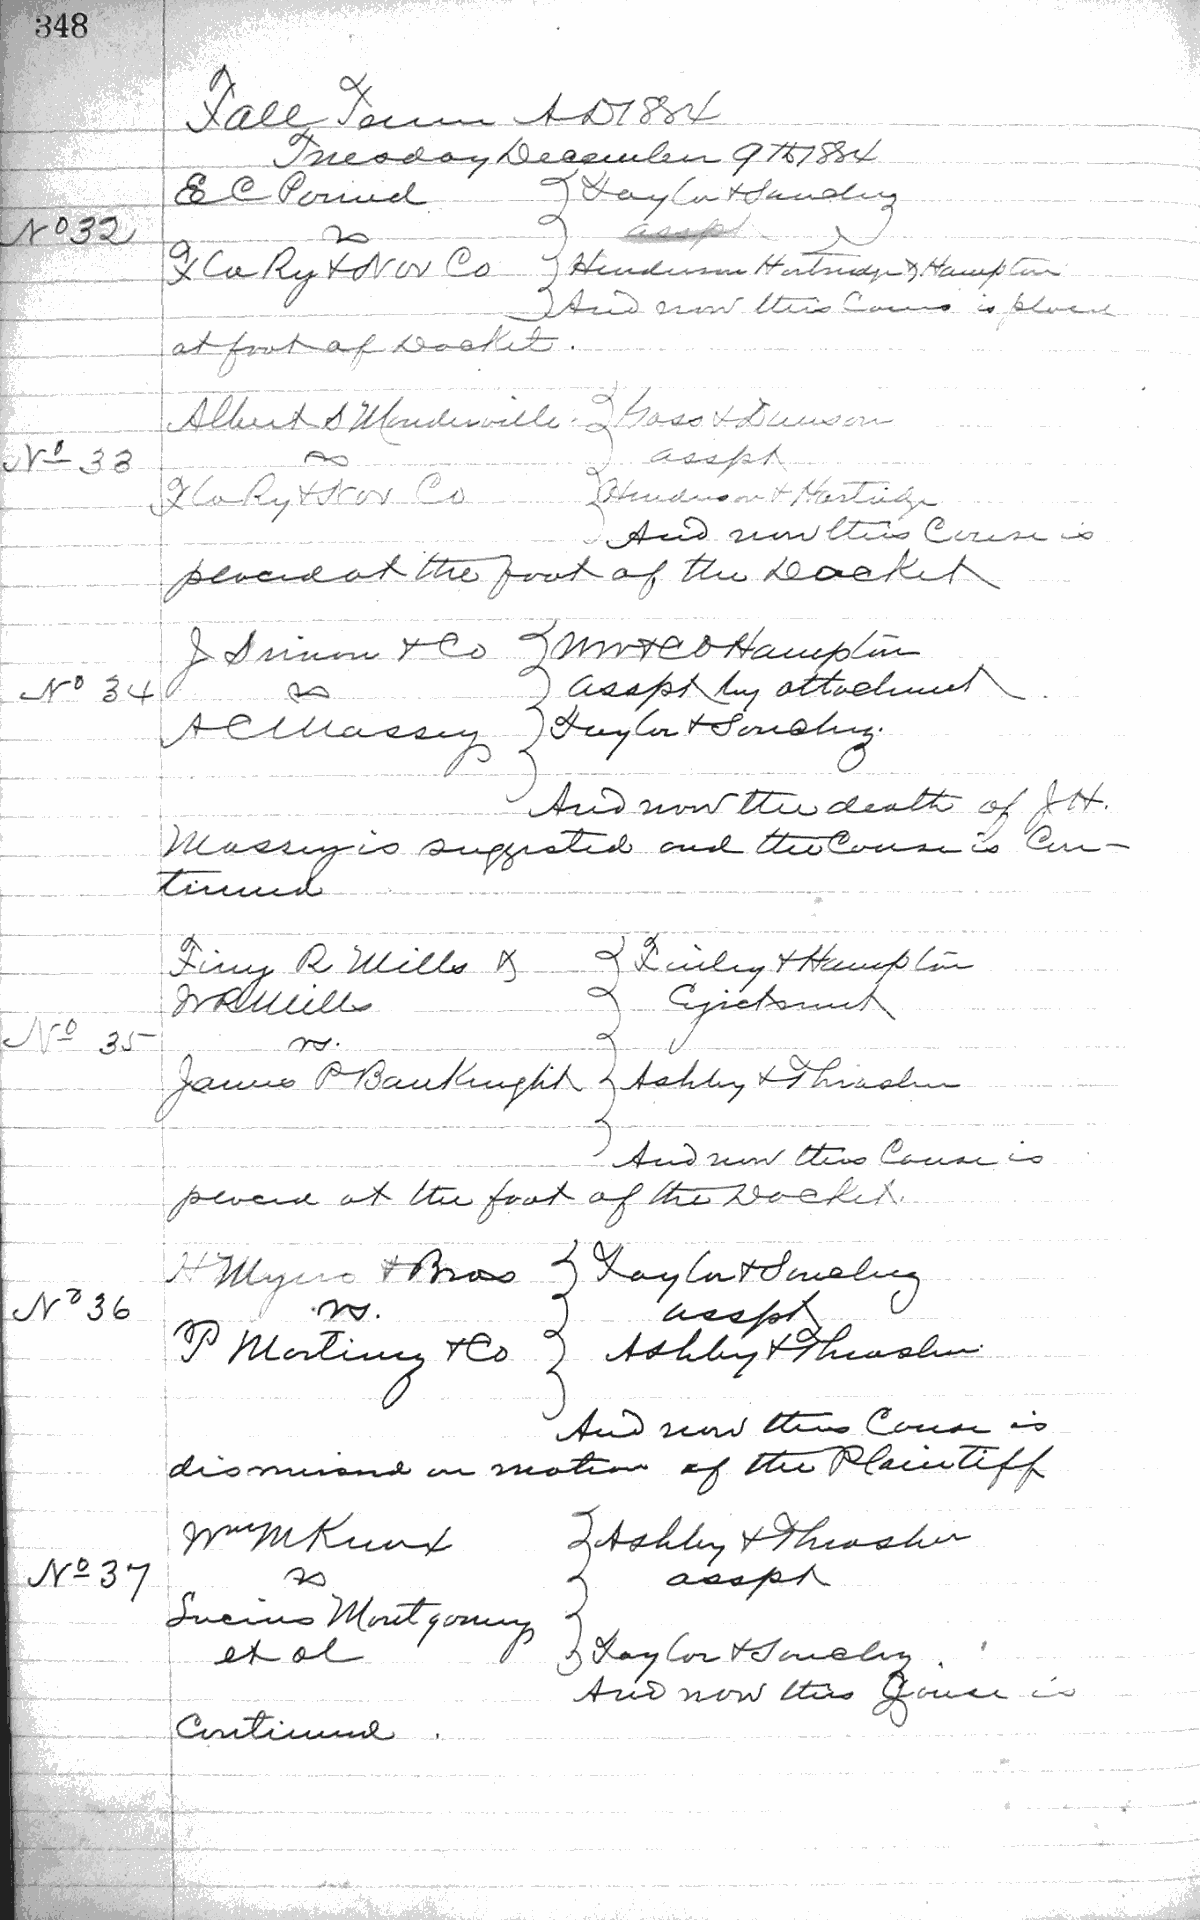 348
Fall Term A D 1884
Tuesday December 9th 1884
E C Pound } Taylor & Sanchez
No 32 vs } asspt
Fla Ry & Nav Co } Henderson Hartridge & Hampton
And now this Cause is placed
at foot of Docket.
Albert S Mandeville } & Dawson
No 33 vs } asspt
Fla Ry & Nav Co } Henderson & Hartridge
And now this Cause is
placed at the foot of the Docket
J Simon & Co } Wm & C D Hampton
No 34 vs } asspt by attachment
A C Massey } Taylor & Sanchez.
And now the death of J H.
Massey is suggested and the Cause is Con-
tinued
R Mills & } Finley & Hampton
W R Mills } Ejectment
No 35 vs.
James P Bauknight } Ashby & Thrasher
And now this Cause is
placed at the foot of the Docket.
H Myers & Bros } Taylor & Sanchez
No 36 vs. } asspt
P Martinez & Co } Ashby & Thrasher.
And now this Cause is
dismissed on motion of the Plaintiff
Wm M Knox } Ashby & Thrasher
No 37 vs } asspt
Lucius Montgomery
et al } Taylor & Sanchez.
And now this Cause is
Continued.